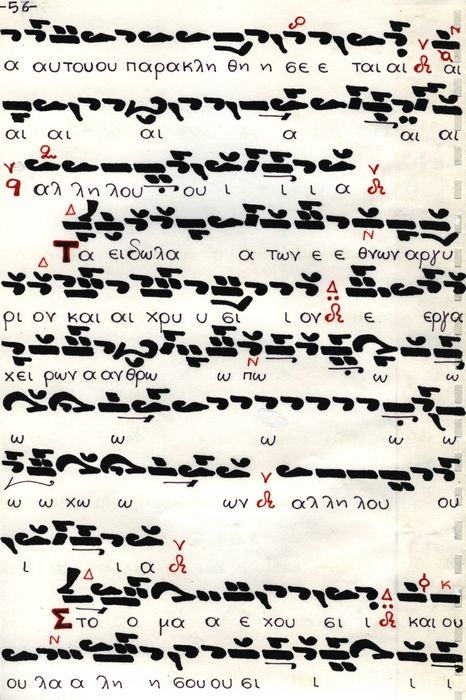 -56-
α αυτουου παρακλη θη η σε ε ται αι αι
αι αι αι α αι αι
αλ λη λου ου ι ι ι α
Τα ειδωλα α των ε ε θνων αργυ
ρι ον και αι χρυ υ σι ι ον ε εργα
χει ρων α ανθρω ω πω ω ω
ω ω ω ω ω
ω ω χω ω ων αλληλου ου
ι ι α
Στο ο μα α ε χου σι ι και ου
ου λα α λη η σουου σι ι ι